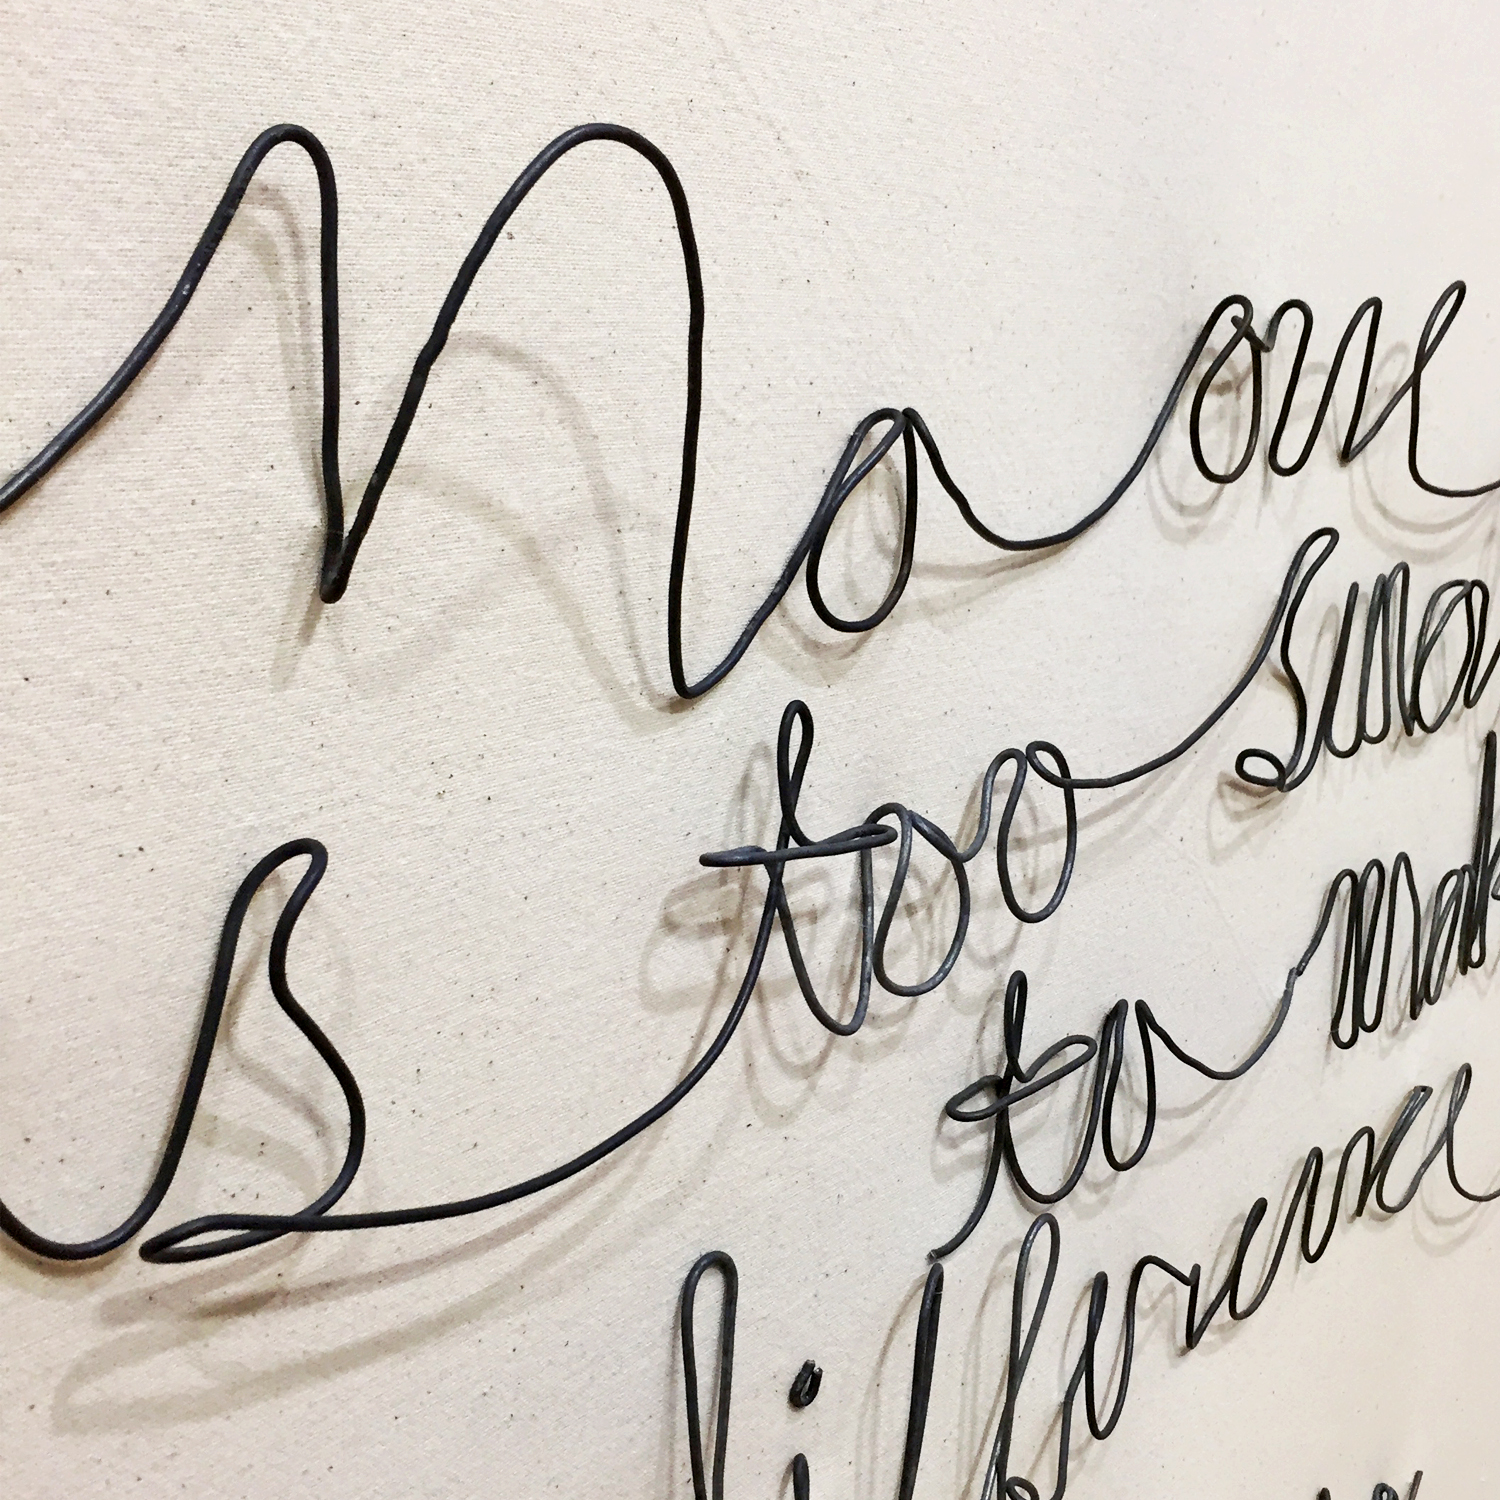 No one
s too sma
to mak
difference